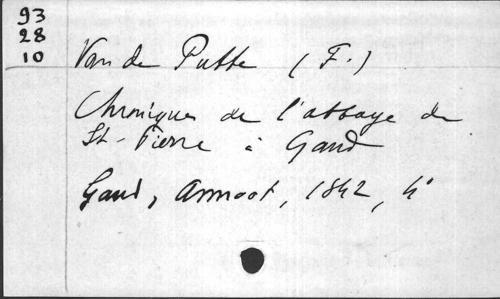 93
28
10
Van de Putte (F.)
Chroniques de l'abbaye de
St-Pierre à Gand
Gand, Annoot, 1842, 4°